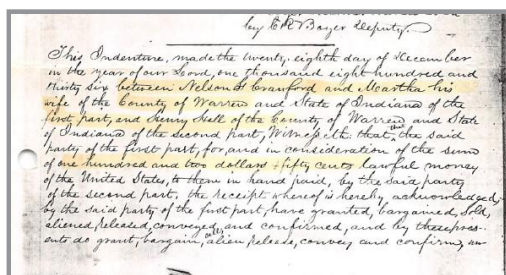 by C R Boyer Deputy.
This Indenture, made the twenty-eighth day of December
in the year of our Lord, one thousand eight hundred and
thirty six between Nelson H Crawford and Martha his
wife of the County of Warren and State of Indiana of the
first part, and Henry Hell of the County of Warren and State
of Indiana of the second part, Witnesseth that, the said
party of the first part, for, and in consideration of the sum
of one hundred and two dollars + fifty cents lawful money
of the United States, to them in hand paid, by the said party
of the second part, the receipt whereof is hereby acknowledged,
by the said party of the first part, have granted, bargained, Sold,
aliened, released, conveyed and confirmed, and by these pres-
ents do grant, bargain, alien, release, convey and confirm, un